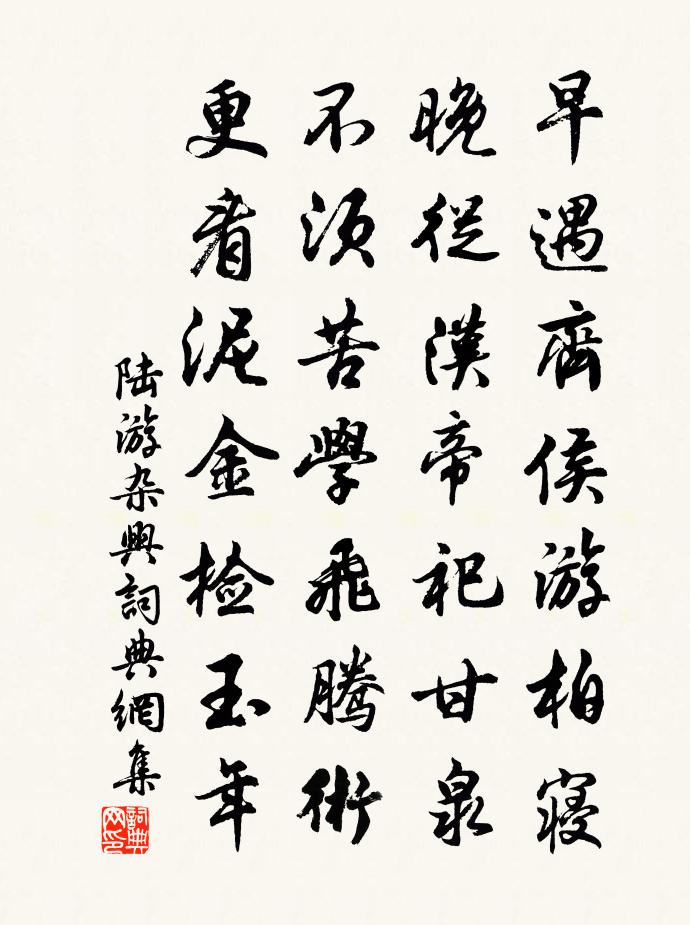 早遇齊侯游柏寢
晚從漢帝祀甘泉
不須苦學飛騰術
更看泥金檢玉年
陆游杂興詞典網集
詞典网印